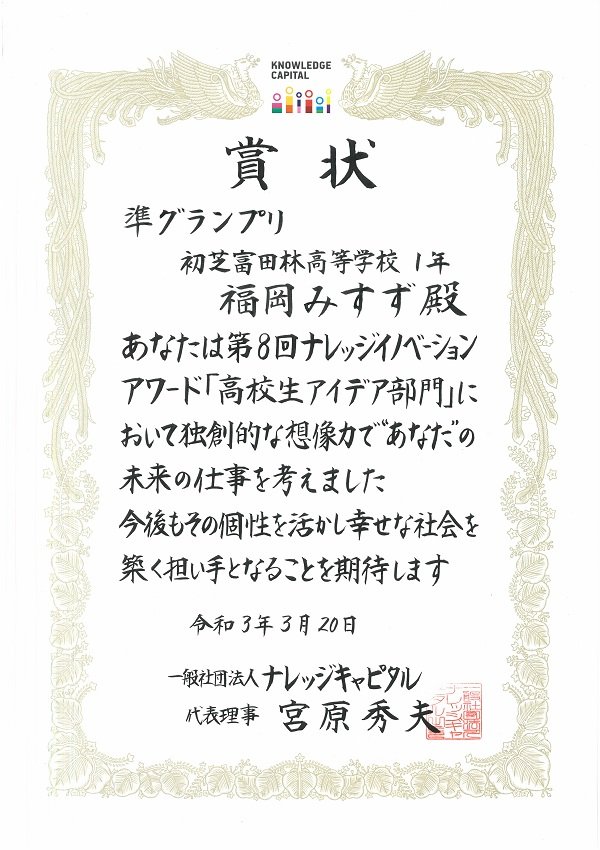 KNOWLEDGE
CAPITAL
賞状
準グランプリ
初芝富田林高等学校 1年
福岡みすず殿
あなたは第8回ナレッジイノベーション
アワード「高校生アイデア部門」に
おいて独創的な想像力で“あなた”の
未来の仕事を考えました
今後もその個性を活かし幸せな社会を
築く担い手となることを期待します
令和3年3月20日
一般社団法人ナレッジキャピタル
代表理事 宮原秀夫